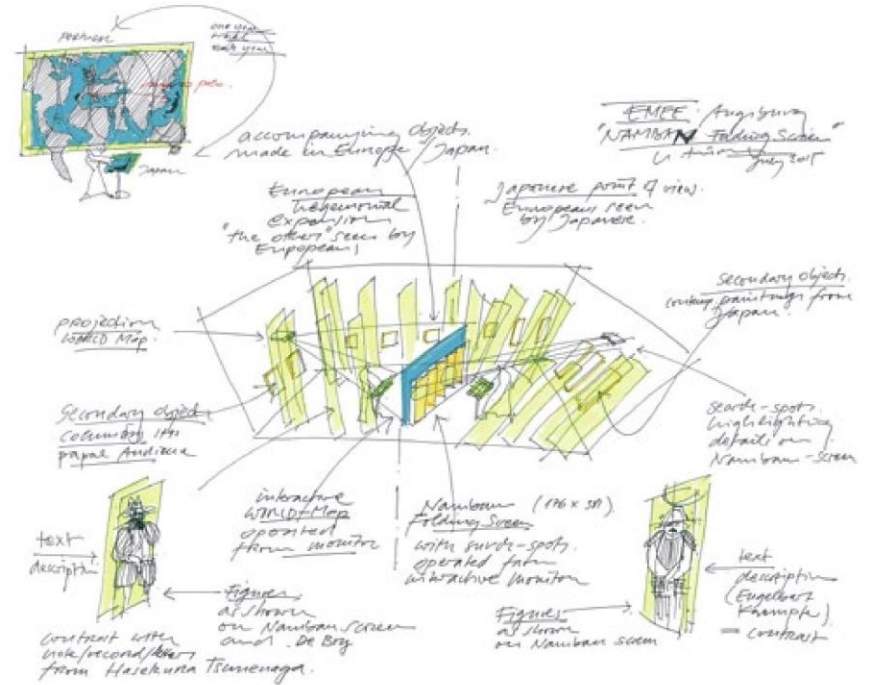 Portugal
one year
travel
each year
Japan
EMEE Augsburg
"NAMBAN Folding Screen"
July 2015
accompanying objects.
made in Europe / Japan.
European
hegemonial
expansion
"the others" seen by
Europeans
Japanese point of view.
Europeans seen
by Japanese.
Secondary objects.
paintings from
Japan.
projection
WORLD Map.
Secondary object
papal Audience
search-spots.
highlighting
detail on
Namban-screen
interactive
WORLD-Map
operated
from monitor
Namban (176 x 381).
Folding Screen
with search-spots.
operated from
interactive monitor
text
description
Figures
as shown
on Namban screen
and De Bry
contrast with
note/record/letters
from Hasekura Tsunenaga.
Figures
as shown
on Namban screen
text
description
(Engelbert
Kaempfer)
= contrast